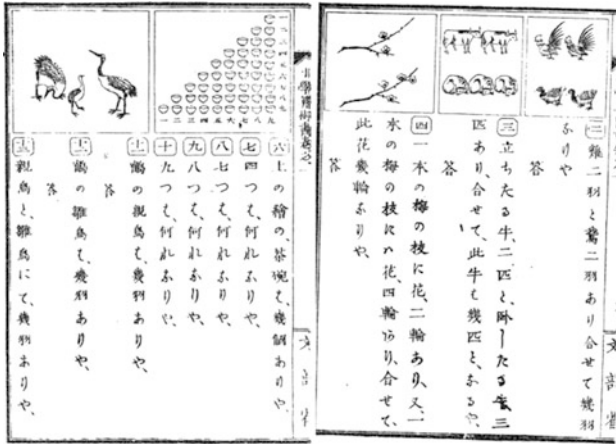 二 雞二羽と鶩二羽あり合せて幾羽
なりや
答
三 立ちたる牛、二匹と、卧したる牛三
匹あり、合せて、此牛は幾匹と、なるや、
答
四 一本の梅の枝に花、二輪あり、又、一
本の梅の枝に花、四輪あり、合せて、
此花幾輪なりや、
答
文部省
一二三四五六七八九
一二三四五六七八九
六 上の繪の、茶碗は、幾個ありや、
七 四つは、何れなりや、
八 七つは、何れなりや、
九 八つは、何れなりや、
十 九つは、何れなりや、
十一 鶴の親鳥は、幾羽ありや、
答
十二 鶴の雛鳥は、幾羽ありや、
答
十三 親鳥と、雛鳥にて、幾羽ありや、
文部省